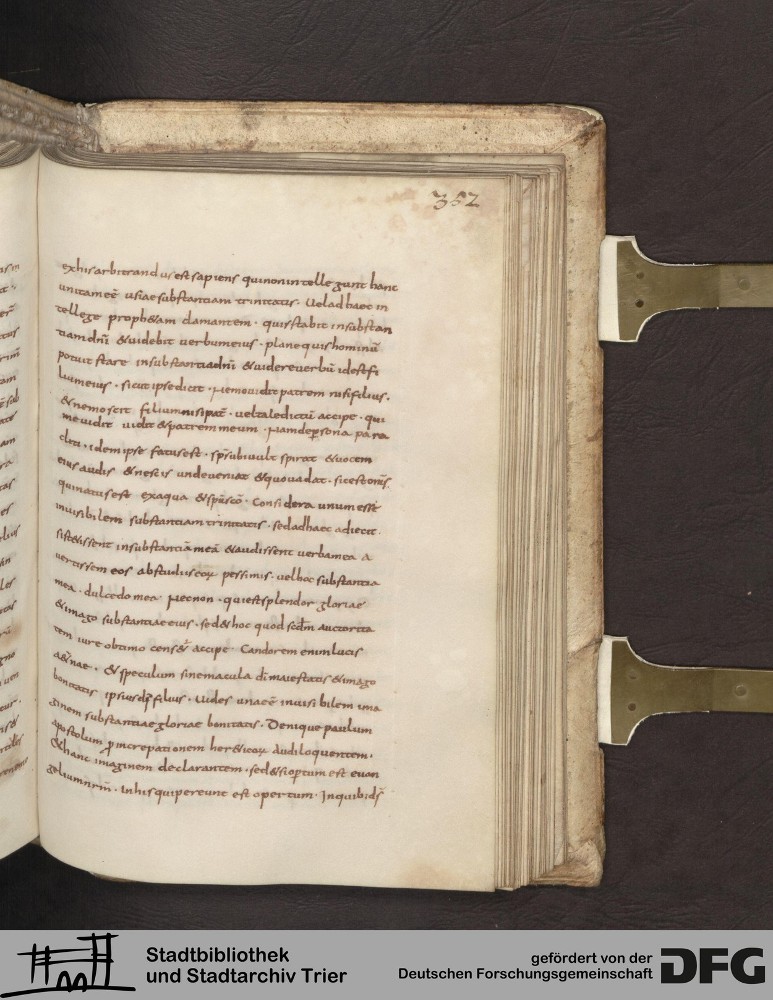 352
ex his arbitrandus est sapiens qui non intellegunt hanc
unitam eē usiae substantiam trinitatis. Vel ad haec in
tellege prophetam clamantem. quis stabit in substan
tiam dnī & videbit verbum eius. plane quis hominū
potuit stare in substantia dnī & videre verbū id est fi
lium eius. sicut ipse dicit. Nemo vidit patrem nisi filius.
& nemo scit filium nisi pat̄. vel tale dictū accipe. qui
me vidit vidit & patrem meum. Nam de persona para
cliti. idem ipse fatus est. sps̄ ubi vult spirat & vocem
eius audis & nescis unde veniat & quo vadat. sic est om̄s
qui natus est ex aqua & spū scō. Considera unum esse
invisibilem substantiam trinitatis. sed ad haec adiecit.
si stetissent in substantiā meā & audissent verba mea a
vertissem eos ab studiis eorum pessimis. vel hoc substantia
mea. dulcedo mea. Necnon. qui est splendor gloriae
& imago substantiae eius. sed & hoc quod scdm̄ auctorita
tem iure obtimo censetur accipe. Candorem enim lucis
aet̄nae. & speculum sine macula dī maiestatis & imago
bonitatis ipsius dī filius. Vides una eē invisibilem ima
ginem substantiae gloriae bonitatis. Denique paulum
apostolum p increpationem hereticorum audi loquentem.
& hanc imaginem declarantem. sed & si opertum est evan
gelium nrm̄. in his qui pereunt est opertum. In quibus ds̄
Stadtbibliothek
und Stadtarchiv Trier
gefördert von der
Deutschen Forschungsgemeinschaft
DFG